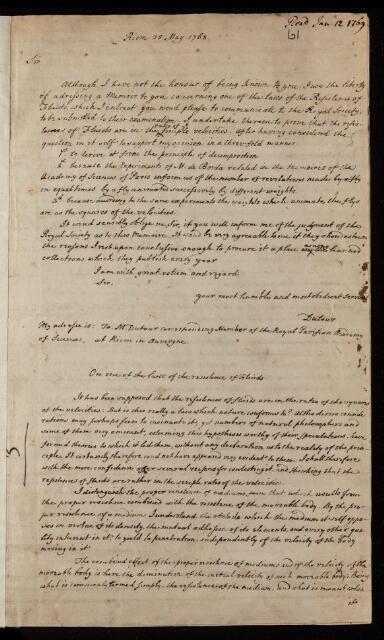 Read Jan. 12 1769
61
Riom 25 May 1768
Sir
Although I have not the honour of being known to you, I use the liberty
of adressing a Memoir to you concerning one of the laws of the Resistance of
Fluids, which I intreat you would please to communicate to the Royal Society,
to be submitted to their examination. I undertake therein to prove that the resis-
tances of Fluids are in the simple velocities. After having considered the
question in it self I support my opinion in a three fold manner
1° to because it from the principle of decomposition
2° because the Experiments of M de Borda related in the memoires of the
Academy of Sciences of Paris inform us of the number of revolutions made by a fly
in equal times by a fly animated successively by different weights.
3° because according to the same experiments the weights which animate the fly
are as the squares of the velocities.
It would sensibly oblige me, Sir, if you will inform me of the judgment of the
Royal Society as to this Memoire. It would be very agreeable to me if they should esteem
the reasons I rest upon conclusive enough to procure it a place in the learned
collections which they publish every year
I am with great esteem and regard
Sir,
your most humble and most obedient servant
Dutour
My adresse is: To M Dutour corresponding Member of the Royal Parisian Academy
of Sciences, at Riom in Auvergne
On one of the laws of the resistence of Fluids
It has been supposed that the resistences of fluids are in the ratio of the squares
of the velocities. But is this really a law which nature conforms to? Altho divers consid-
erations may perhaps seem to insinuate it, yet numbers of natural philosophers and
some of them very eminent, esteeming this hypothese worthy of their speculations, have
formed theories to which it led them, without any declaration as to the reality of the prin-
ciple. It certainly therefore could not have appeared very evident to them. I shall therefore
with the more confidence offer several reasons for contesting it, and thinking that the
resistences of fluids are rather in the simple ratio of the velocities.
I distinguish the proper resistence of mediums, from that which results from
the proper resistence combined with the resistence of the moveable body. By the pro-
per resistence of a medium I understand the obstacle which the medium it self oppo-
ses in virtue of its density, the mutual adhesion of its elements, and every other qua-
lity inherent in it, to yield to penetration, independently of the velocity of the body
moving in it
The combined effect of the proper resistence of mediums and of the velocity of the
moveable body is here the diminution of the initial velocity of such moveable body: Being
what is commonly termed simply, the resistance of the medium, and what is mani